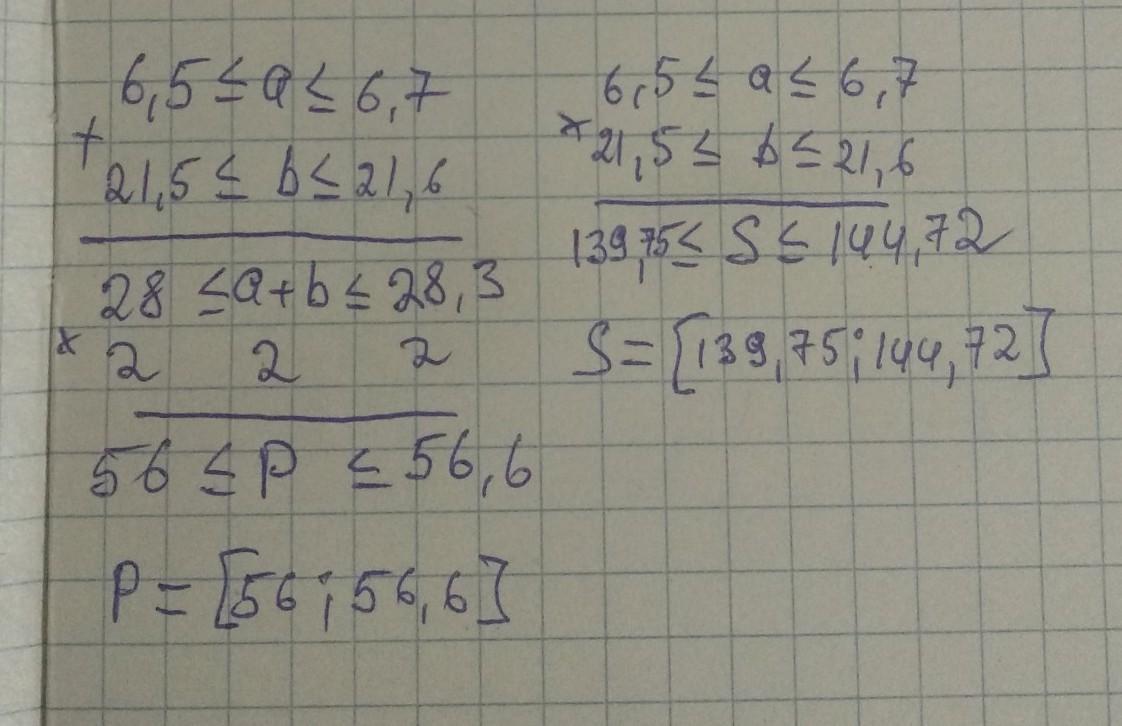 6,5 ≤ a ≤ 6,7
+
21,5 ≤ b ≤ 21,6
28 ≤ a+b ≤ 28,3
× 2 2 2
56 ≤ P ≤ 56,6
P = [56; 56,6]
6,5 ≤ a ≤ 6,7
× 21,5 ≤ b ≤ 21,6
139,75 ≤ S ≤ 144,72
S = [139,75; 144,72]